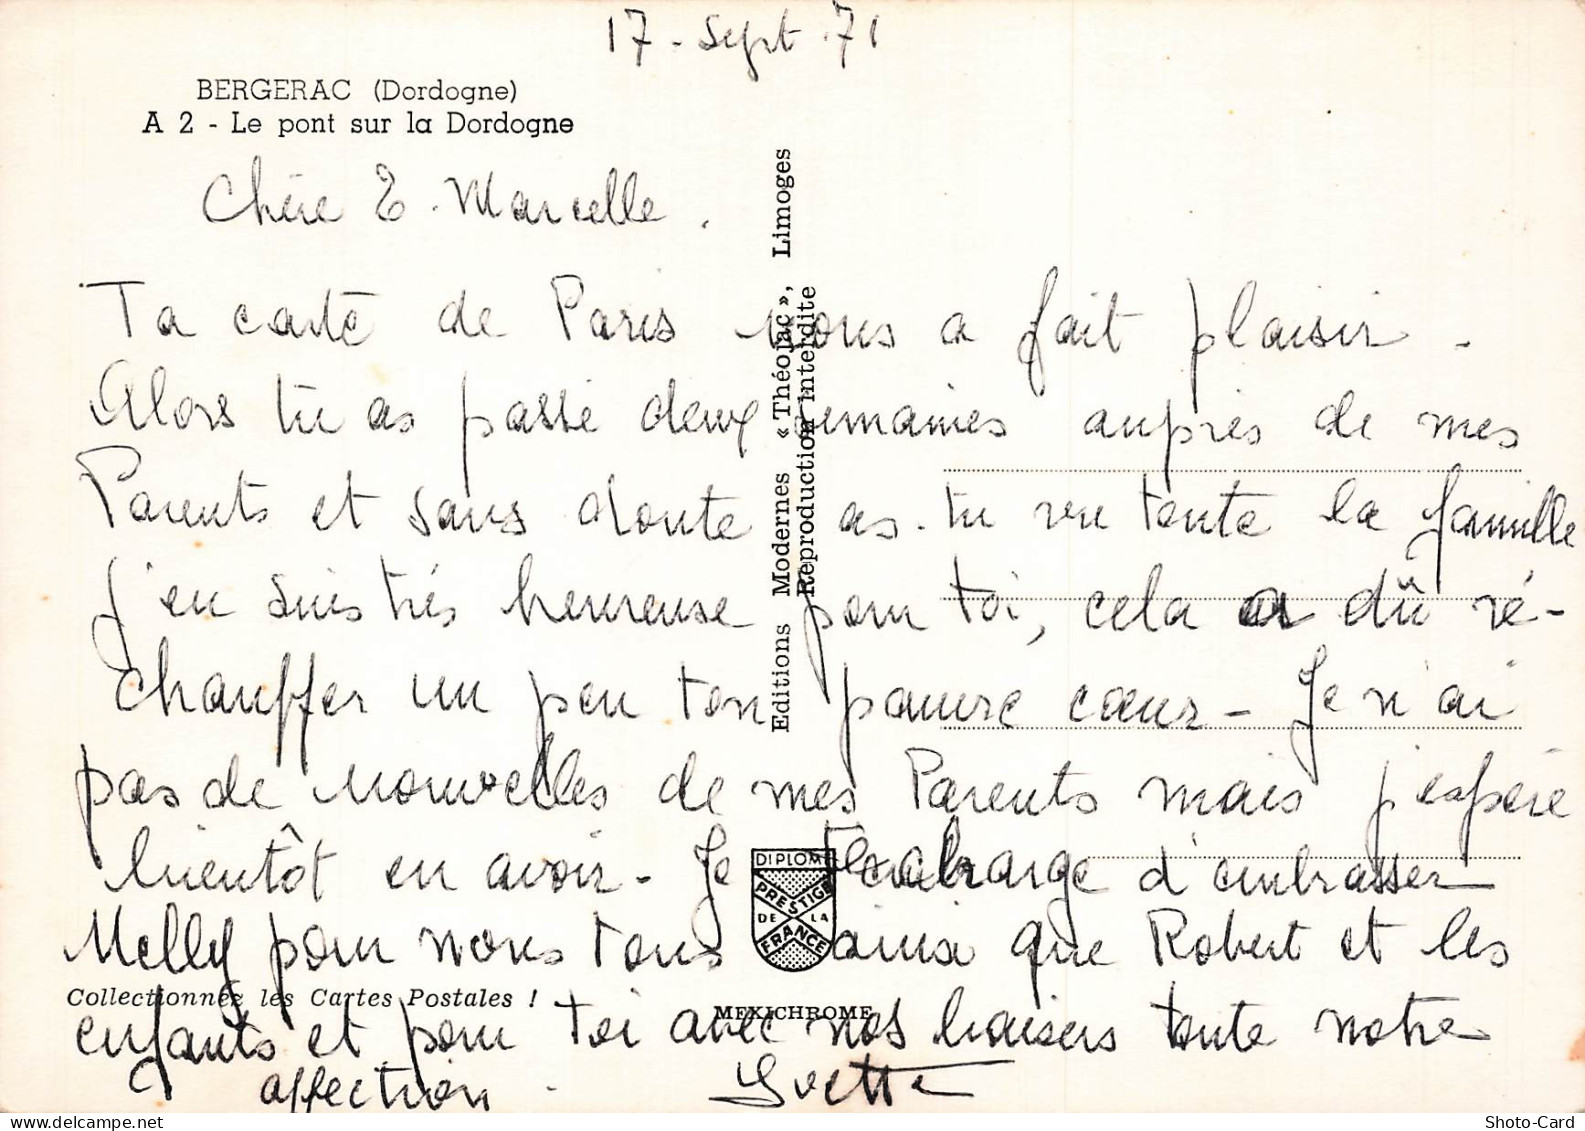 17 - Sept. 71
BERGERAC (Dordogne)
A 2 - Le pont sur la Dordogne
Chère T. Marcelle.
Ta carte de Paris nous a fait plaisir.
Alors tu as passé deux semaines auprès de mes
Parents et sans doute as-tu vu toute la famille
J'en suis très heureuse pour toi, cela a dû ré-
chauffer un peu ton pauvre cœur - Je n'ai
pas de nouvelles de mes Parents mais j'espère
bientôt en avoir - Je te charge d'embrasser
Melly pour nous tous ainsi que Robert et les
enfants et pour toi avec nos baisers toute notre
affection.
Yvette
Editions Modernes « Théojac », Limoges
Reproduction interdite
DIPLOME
PRESTIGE
DE LA
FRANCE
Collectionnez les Cartes Postales !
MEXICHROME
Shoto-Card